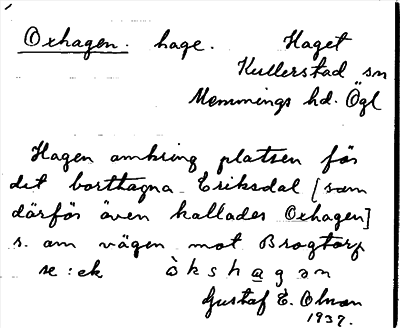 Oxhagen. hage. Haget
Kullerstad sn
Memmings hd. Ögl
Hagen omkring platsen för
det borttagna Eriksdal [som
därför även kallades Oxhagen]
s. om vägen mot Brogtorp
se : ek òkshagən
Gustaf E. Olson
1937.